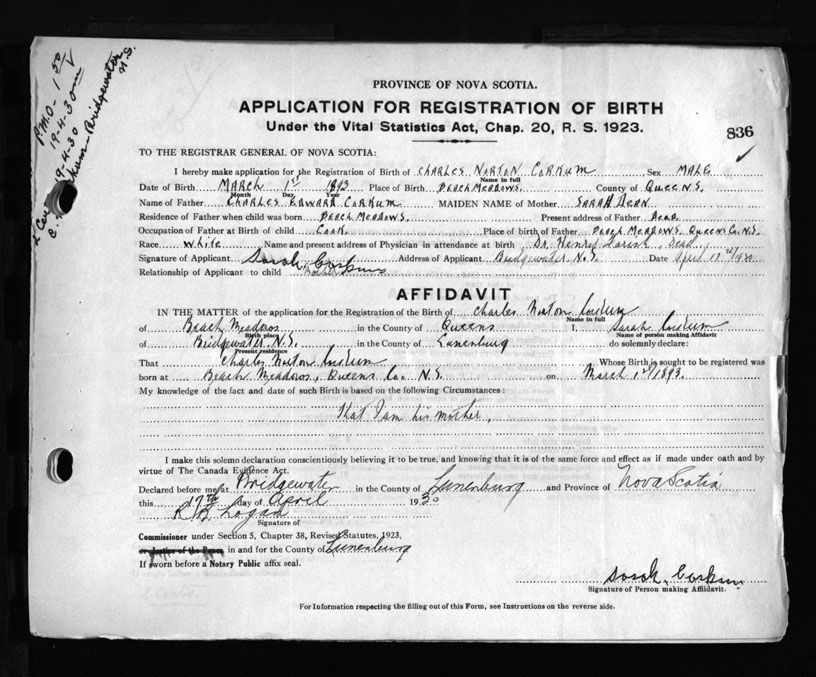 P.M.O - 1 50
19-4-30
19-4-30
Bridgewater
N.S.
PROVINCE OF NOVA SCOTIA.
APPLICATION FOR REGISTRATION OF BIRTH
Under the Vital Statistics Act, Chap. 20, R. S. 1923.
836
TO THE REGISTRAR GENERAL OF NOVA SCOTIA:
I hereby make application for the Registration of Birth of CHARLES NORTON CORKUM Sex MALE
Name in full
Date of Birth MARCH 1st 1893 Place of Birth BEACH MEADOWS. County of QUEENS.
Month Day Year
Name of Father CHARLES EDWARD CORKUM MAIDEN NAME of Mother SARAH DEAN
Residence of Father when child was born BEACH MEADOWS. Present address of Father DEAD.
Occupation of Father at Birth of child COOK. Place of birth of Father BEACH MEADOWS. QUEENS CO. N.S.
Race White Name and present address of Physician in attendance at birth Dr. Henry Dead
Signature of Applicant Sarah Corkum Address of Applicant Bridgewater N.S. Date April 17 1930
Relationship of Applicant to child Mother
AFFIDAVIT
IN THE MATTER of the application for Registration of the Birth of Charles Norton Corkum
Name in full
of Beach Meadows in the County of Queens I, Sarah Corkum
Birth place Name of person making Affidavit
of Bridgewater N.S. in the County of Lunenburg do solemnly declare:
Present residence
That Charles Norton Corkum Whose Birth is sought to be registered was
born at Beach Meadows, Queens Co. N.S. on March 1st/1893.
My knowledge of the fact and date of such Birth is based on the following Circumstances:
That I am his mother.
I make this solemn declaration conscientiously believing it to be true, and knowing that it is of the same force and effect as if made under oath and by
virtue of The Canada Evidence Act.
Declared before me at Bridgewater in the County of Lunenburg and Province of Nova Scotia
this 17th day of April 1930
Logan
Signature of
Commissioner under Section 5, Chapter 38, Revised Statutes, 1923,
or Justice of the Peace in and for the County of Lunenburg
If sworn before a Notary Public affix seal.
Sarah Corkum
Signature of Person making Affidavit.
For Information respecting the filling out of this Form, see Instructions on the reverse side.